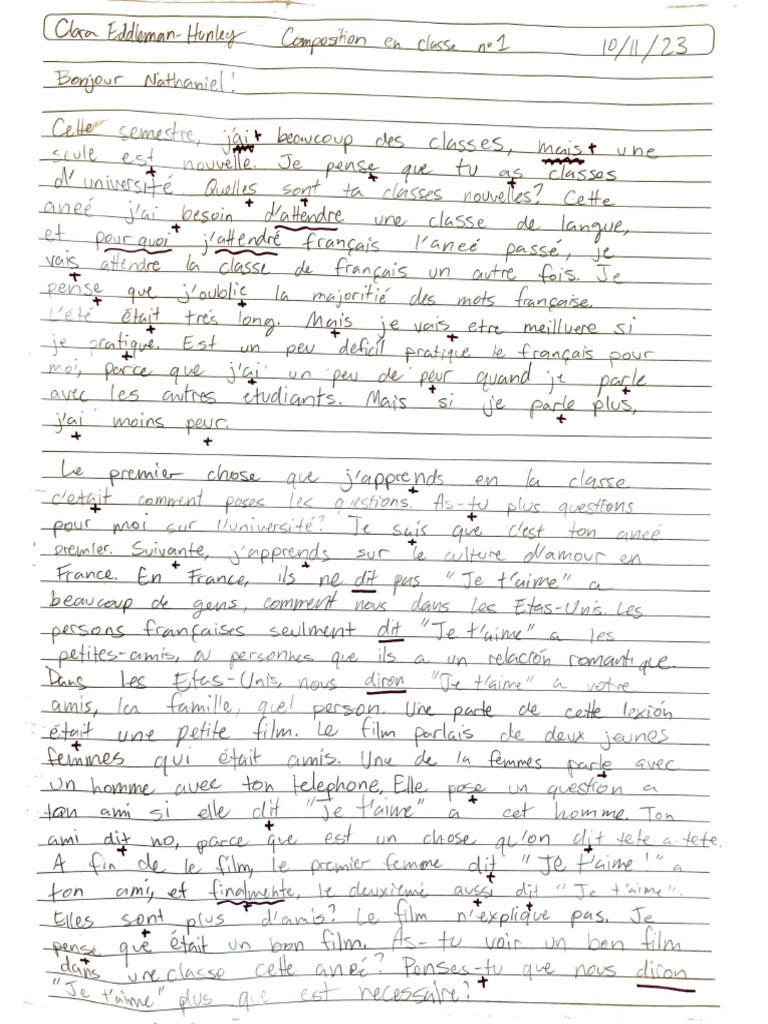 Clara Eddleman-Hunley Composition en classe nº1 10/11/23
Bonjour Nathaniel!
Cette semestre, j'ai + beaucoup des classes, mais + une
seule est nouvelle. Je pense que tu as classes
d'université. Quelles sont ta classes nouvelles? Cette
aneé j'ai besoin d'attendre une classe de langue,
et pourquoi j'attendré français l'aneé passé, je
vais attendre la classe de français un autre fois. Je
pense que j'oublie la majoritié des mots française.
L'été était trés long. Mais je vais etre meilluere si
je pratique. Est un peu deficil pratique le français pour
moi, parce que j'ai un peu de peur quand je parle
avec les autres etudiants. Mais si je parle plus,
j'ai moins peur.
Le premier chose que j'apprends en la classe
c'etait comment poses les questions. As-tu plus questions
pour moi sur l'université? Je sais que c'est ton aneé
premier. Suivante, j'apprends sur le culture d'amour en
France. En France, ils ne dit pas "Je t'aime" a
beaucoup de gens, comment nous dans les Etas-Unis. Les
persons françaises seulment dit "Je t'aime" a les
petites-amis, ou personnes que ils a un relación romantique.
Dans les Etas-Unis, nous diron "Je t'aime" a votre
amis, la famille, quel person. Une parte de cette lexión
était une petite film. Le film parlais de deux jeunes
femmes qui était amis. Une de la femmes parle avec
un homme avec ton telephone, Elle pose un question a
ton ami si elle dit "Je t'aime" a cet homme. Ton
ami dit no, parce que est un chose qu'on dit tete a-tete.
A fin de le film, le premier femme dit "Je t'aime!" a
ton ami, et finalmente, le deuxiemé aussi dit "Je t'aime".
Elles sont plus d'amis? Le film n'explique pas. Je
pense que était un bon film. As-tu voir un bon film
dans une classe cette aneé? Penses-tu que nous diron
"Je t'aime" plus que est necessaire?